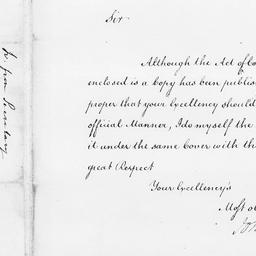 Sir
Although the Act of Co
enclosed is a Copy has been publis
proper that your Excellency should
official Manner, I do myself the
it under the same Cover with th
great Respect
Your Excellency's
Most o